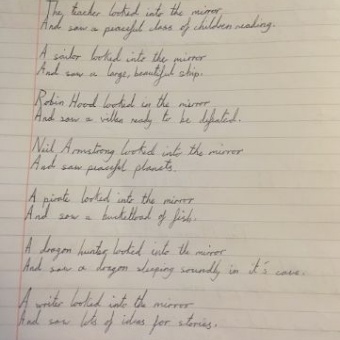 The teacher looked into the mirror
And saw a peaceful class of children reading.
A sailor looked into the mirror
And saw a large, beautiful ship.
Robin Hood looked in the mirror
And saw a villan ready to be defeated.
Neil Armstrong looked into the mirror
And saw peaceful planets.
A pirate looked into the mirror
And saw a bucketload of fish.
A dragon hunter looked into the mirror
And saw a dragon sleeping soundly in it's cave.
A writer looked into the mirror
And saw lots of ideas for stories.